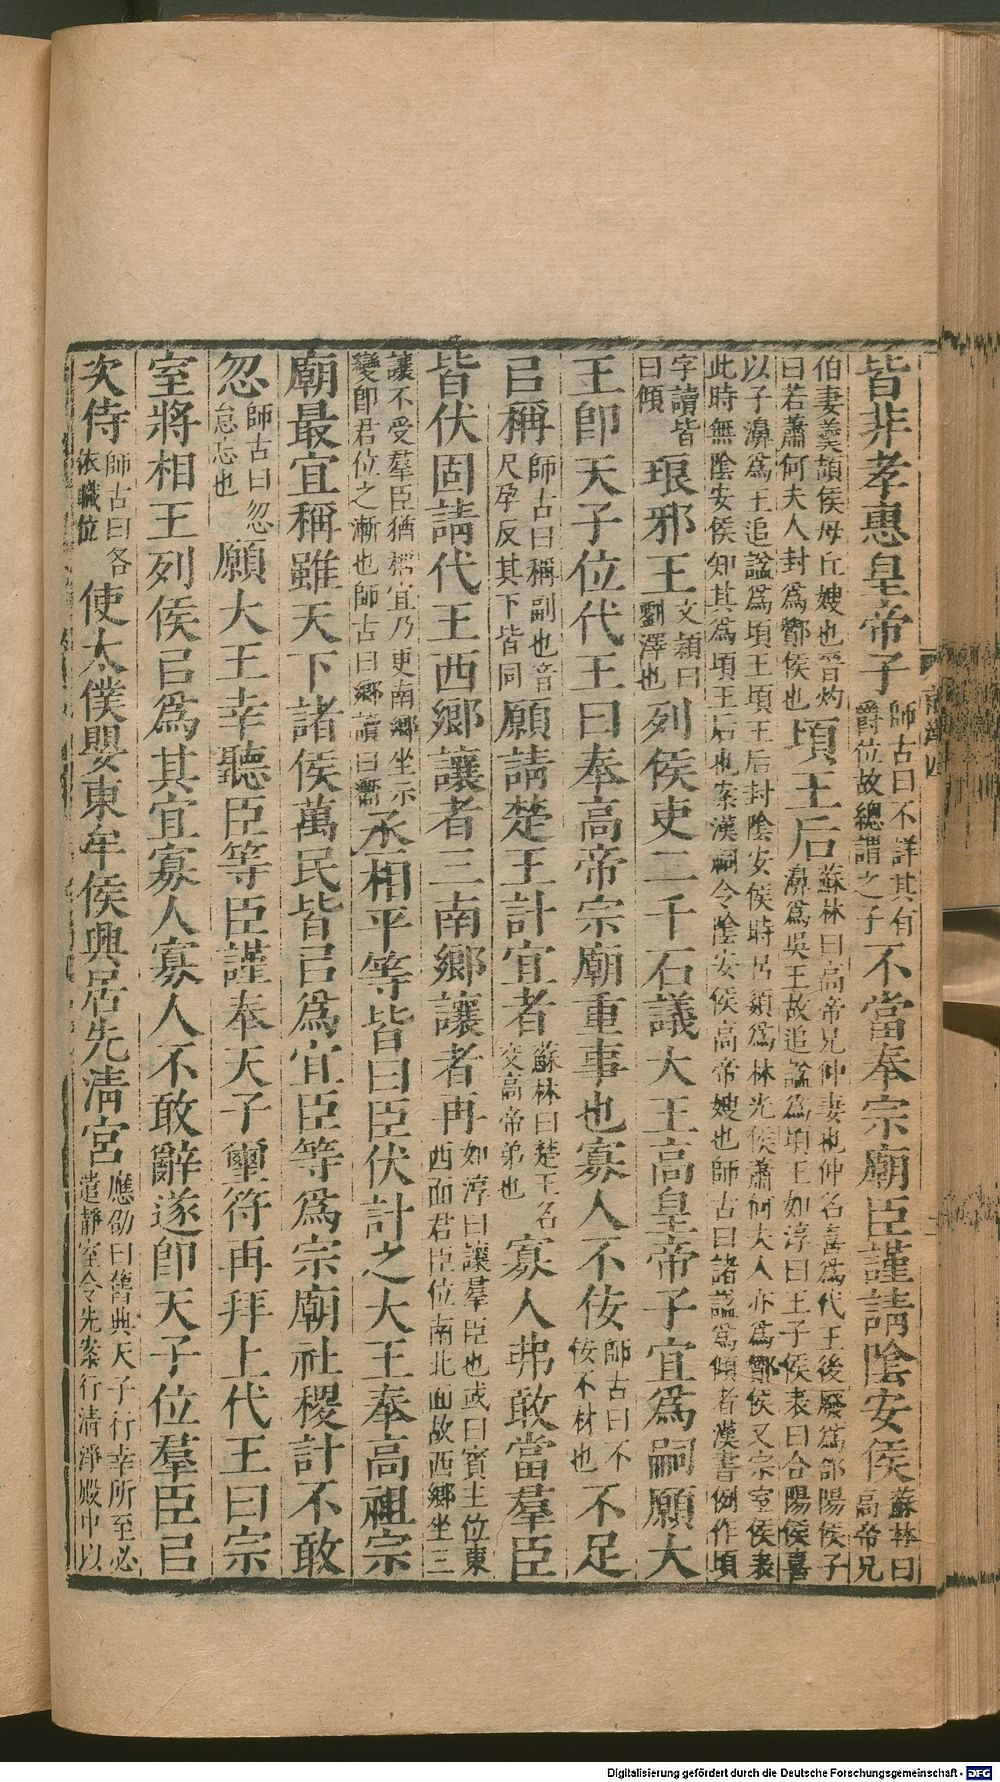 皆非孝惠皇帝子師古曰不詳其有爵位故總謂之子不當奉宗廟臣謹請陰安侯蘇林曰高帝兄
伯妻羹頡侯母丘嫂也晉灼曰若蕭何夫人封為酇侯也頃王后蘇林曰高帝兄仲妻也仲名喜為代王後廢為郃陽侯子濞為吳王故追諡為頃王如淳曰王子侯表曰合陽侯喜
以子濞為王追諡為頃王頃王后封陰安侯時呂嬃為林光侯蕭何夫人亦為酇侯又宗室侯表此時無陰安侯知其為頃王后也案漢祠令陰安侯高帝嫂也師古曰諸諡為傾者漢書例作頃
字讀皆曰傾琅邪王文穎曰劉澤也列侯吏二千石議大王高皇帝子宜為嗣願大
王卽天子位代王曰奉高帝宗廟重事也寡人不佞師古曰不佞不材也不足
㠯稱師古曰稱副也音尺孕反其下皆同願請楚王計宜者蘇林曰楚王名交高帝弟也寡人弗敢當羣臣
皆伏固請代王西鄉讓者三南鄉讓者再如淳曰讓羣臣也或曰賓主位東西面君臣位南北面故西鄉坐三
讓不受羣臣猶稱宜乃更南鄉坐示變卽君位之漸也師古曰鄉讀曰嚮丞相平等皆曰臣伏計之大王奉高祖宗
廟最宜稱雖天下諸侯萬民皆㠯為宜臣等為宗廟社稷計不敢
忽師古曰忽怠忘也願大王幸聽臣等臣謹奉天子璽符再拜上代王曰宗
室將相王列侯㠯為其宜寡人寡人不敢辭遂卽天子位羣臣㠯
次侍師古曰各依職位使太僕嬰東牟侯興居先清宮應劭曰舊典天子行幸所至必遣靜室令先案行清淨殿中以
Digitalisierung gefördert durch die Deutsche Forschungsgemeinschaft - DFG